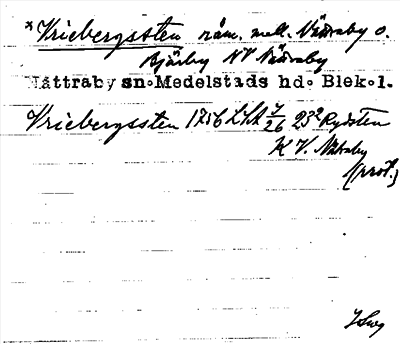 *Vriebergssten råm. mell. Nättraby o.
Bjärby NV Nättraby
Nättraby sn. Medelstads hd. Blek. l.
Vriebergssten 1756 LSA 7/26 23² Rydsten
K V. Nätraby
(prot.)